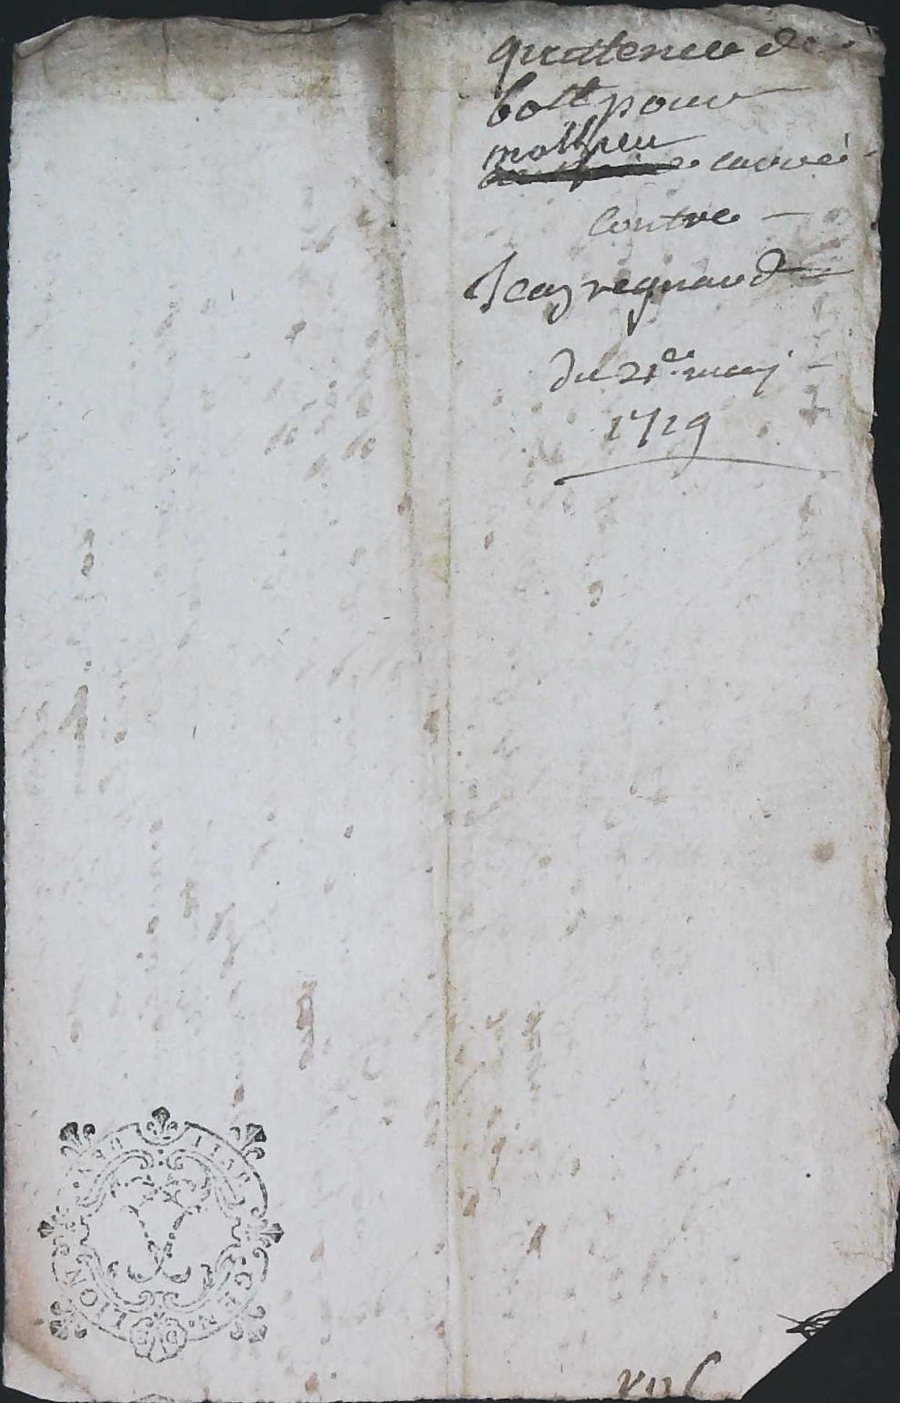 quittence de
bott pour
mathieu
carré
contre
Jean regnaud
du 21e. may
1719
GEN